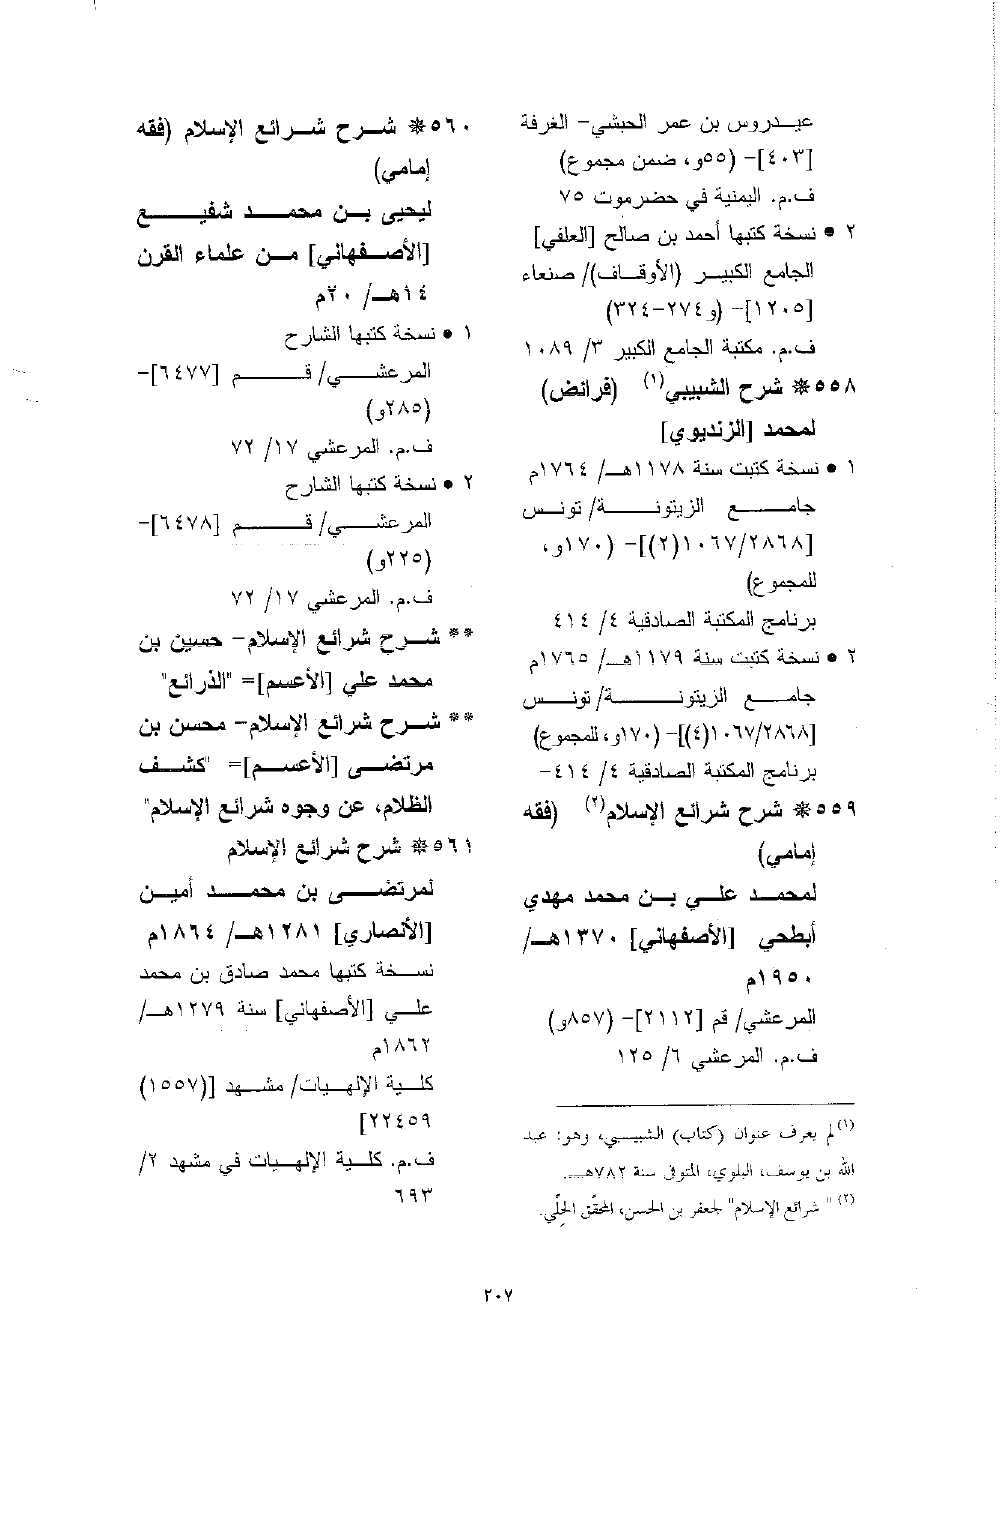 عيدروس بن عمر الحبشي- الغرفة
[٤٠٣]- (٥٥و، ضمن مجموع)
ف.م. اليمنية في حضرموت ٧٥
٢ • نسخة كتبها أحمد بن صالح [العلفي]
الجامع الكبير (الأوقاف)/ صنعاء
[١٢٠٥]- (و٢٧٤-٣٢٤)
ف.م. مكتبة الجامع الكبير ٣/ ١٠٨٩
٥٥٨* شرح الشبيبي(١) (فرائض)
لمحمد [الزنديوي]
١ • نسخة كتبت سنة ١١٧٨هـ/ ١٧٦٤م
جامع الزيتونة/ تونس
[١٠٦٧/٢٨٦٨(٢)]- (١٧٠و،
للمجموع)
برنامج المكتبة الصادقية ٤/ ٤١٤
٢ • نسخة كتبت سنة ١١٧٩هـ/ ١٧٦٥م
جامع الزيتونة/ تونس
[١٠٦٧/٢٨٦٨(٤)]- (١٧٠و، للمجموع)
برنامج المكتبة الصادقية ٤/ ٤١٤-
٥٥٩* شرح شرائع الإسلام(٢) (فقه
إمامي)
لمحمد علي بن محمد مهدي
أبطحي [الأصفهاني] ١٣٧٠هـ/
١٩٥٠م
المرعشي/ قم [٢١١٢]- (٨٥٧و)
ف.م. المرعشي ٦/ ١٢٥
(١) لم يعرف عنوان (كتاب) الشبيبي، وهو: عبد
الله بن يوسف، البلوي، المتوفى سنة ٧٨٢هـ.
(٢) " شرائع الإسلام" لجعفر بن الحسن، المحقّق الحِلّي.
٥٦٠* شرح شرائع الإسلام (فقه
إمامي)
ليحيى بن محمد شفيع
[الأصفهاني] من علماء القرن
١٤هـ/ ٢٠م
١ • نسخة كتبها الشارح
المرعشي/ قم [٦٤٧٧]-
(٢٨٥و)
ف.م. المرعشي ١٧/ ٧٢
٢ • نسخة كتبها الشارح
المرعشي/ قم [٦٤٧٨]-
(٢٢٥و)
ف.م. المرعشي ١٧/ ٧٢
** شرح شرائع الإسلام- حسين بن
محمد علي [الأعسم]= "الذرائع"
** شرح شرائع الإسلام- محسن بن
مرتضى [الأعسم]= "كشف
الظلام، عن وجوه شرائع الإسلام"
٥٦١* شرح شرائع الإسلام
لمرتضى بن محمد أمين
[الأنصاري] ١٢٨١هـ/ ١٨٦٤م
نسخة كتبها محمد صادق بن محمد
علي [الأصفهاني] سنة ١٢٧٩هـ/
١٨٦٢م
كلية الإلهيات/ مشهد [(١٥٥٧)
٢٢٤٥٩]
ف.م. كلية الإلهيات في مشهد ٢/
٦٩٣
٢٠٧